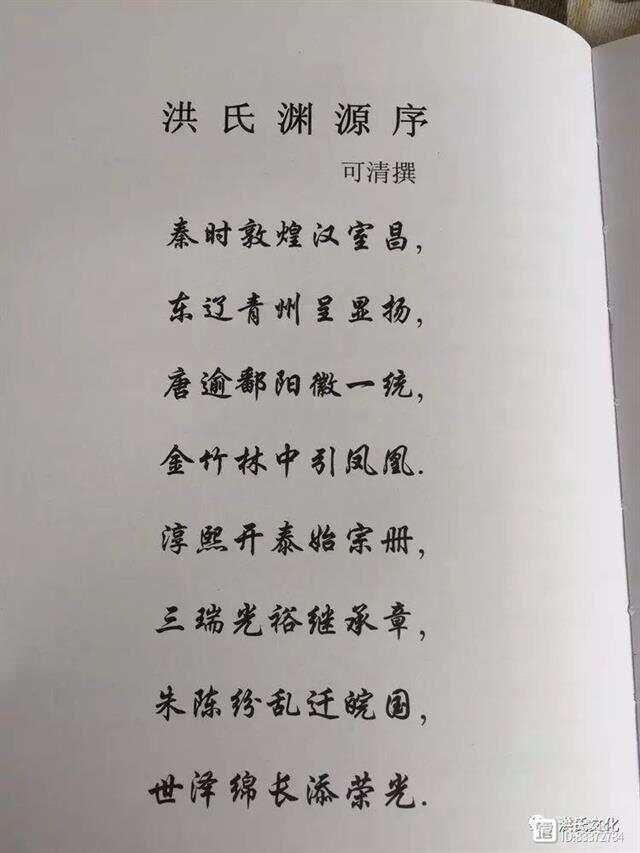 洪氏渊源序
可清撰
秦时敦煌汉室昌,
东辽青州呈显扬,
唐逾鄱阳徽一统,
金竹林中引凤凰.
淳熙开泰始宗册,
三瑞光裕继承章,
朱陈纷乱迁皖国,
世泽绵长添荣光.
洪氏文化